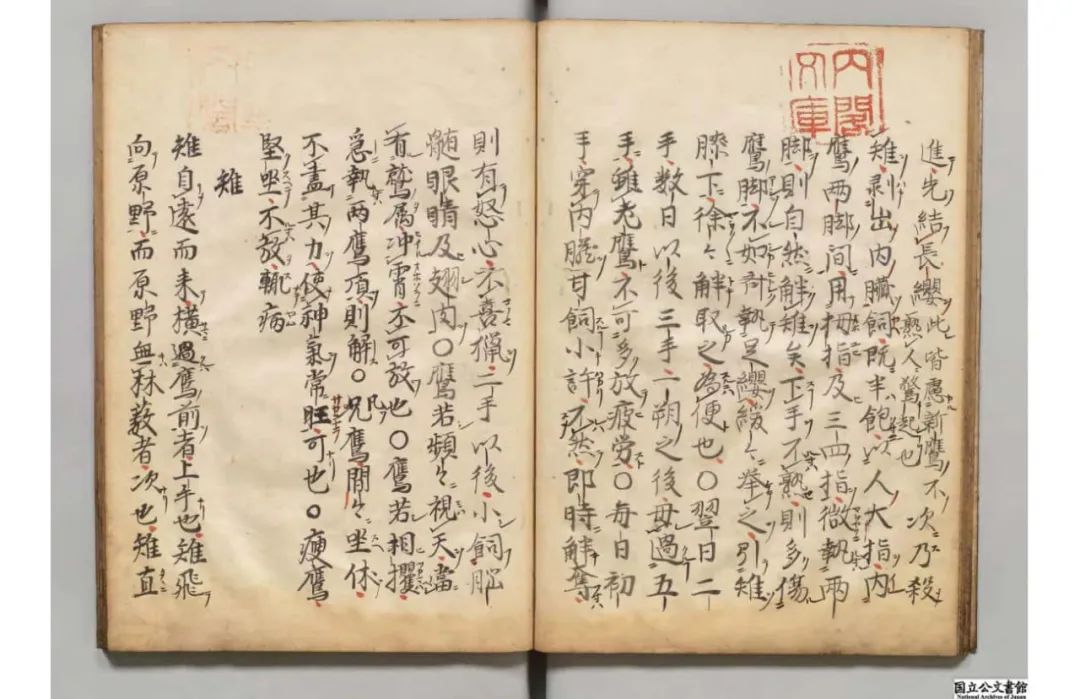 内閣
文庫
進先結長纓此皆慮新鷹不次乃殺
熟人驚起也
雉剥出内臓飼既半飽以人大指内
鷹两脚間用拇指及三四指微執两
脚則自然解雉矣下手不熟則多傷
鷹脚不如討執足纓緩々挙之引雉
膝下徐々解取之為便也〇翌日二
手数日以後三手一朔之後毋過五
手雖老鷹不可多放疲労〇毎日初
手穿内臓甘飼小許不然即時解奪
則有怒心不喜猟二手以後小飼脳
髄眼睛及翅肉〇鷹若頻々視天當
有鷲属冲霄不可放也〇鷹若相攫
急執两鷹項則解〇兄鷹間々坐休
不盡其力使神氣常旺可也〇痩鷹
堅坐不放輙病
雉
雉自遠而来横過鷹前者上手也雉飛
向原野而原野無林薮者次也雉直
国立公文書館
National Archives of Japan